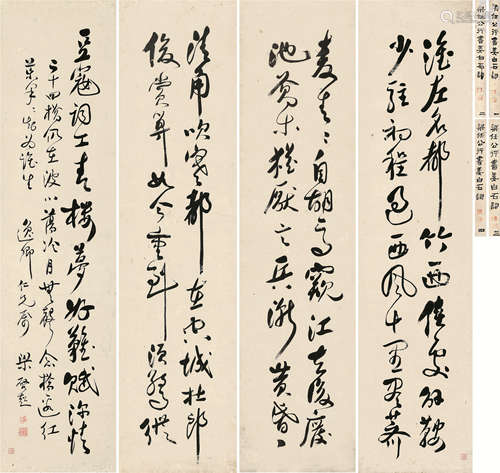 淮左名都竹西佳處解鞍
少駐初程過春風十里盡薺
麥青々自胡馬窺江去後廢
池喬木猶厭言兵漸黃昏
清角吹寒都在空城杜郎
俊賞算如今重到須驚縱
豆蔻詞工青樓夢好難賦深情
二十四橋仍在波心蕩冷月無聲念橋邊紅
藥年々知為誰生
逸卿仁兄屬 梁啟超
梁任公行書姜白石詞 一
梁任公行書姜白石詞 二
梁任公行書姜白石詞 三
梁任公行書姜白石詞 四